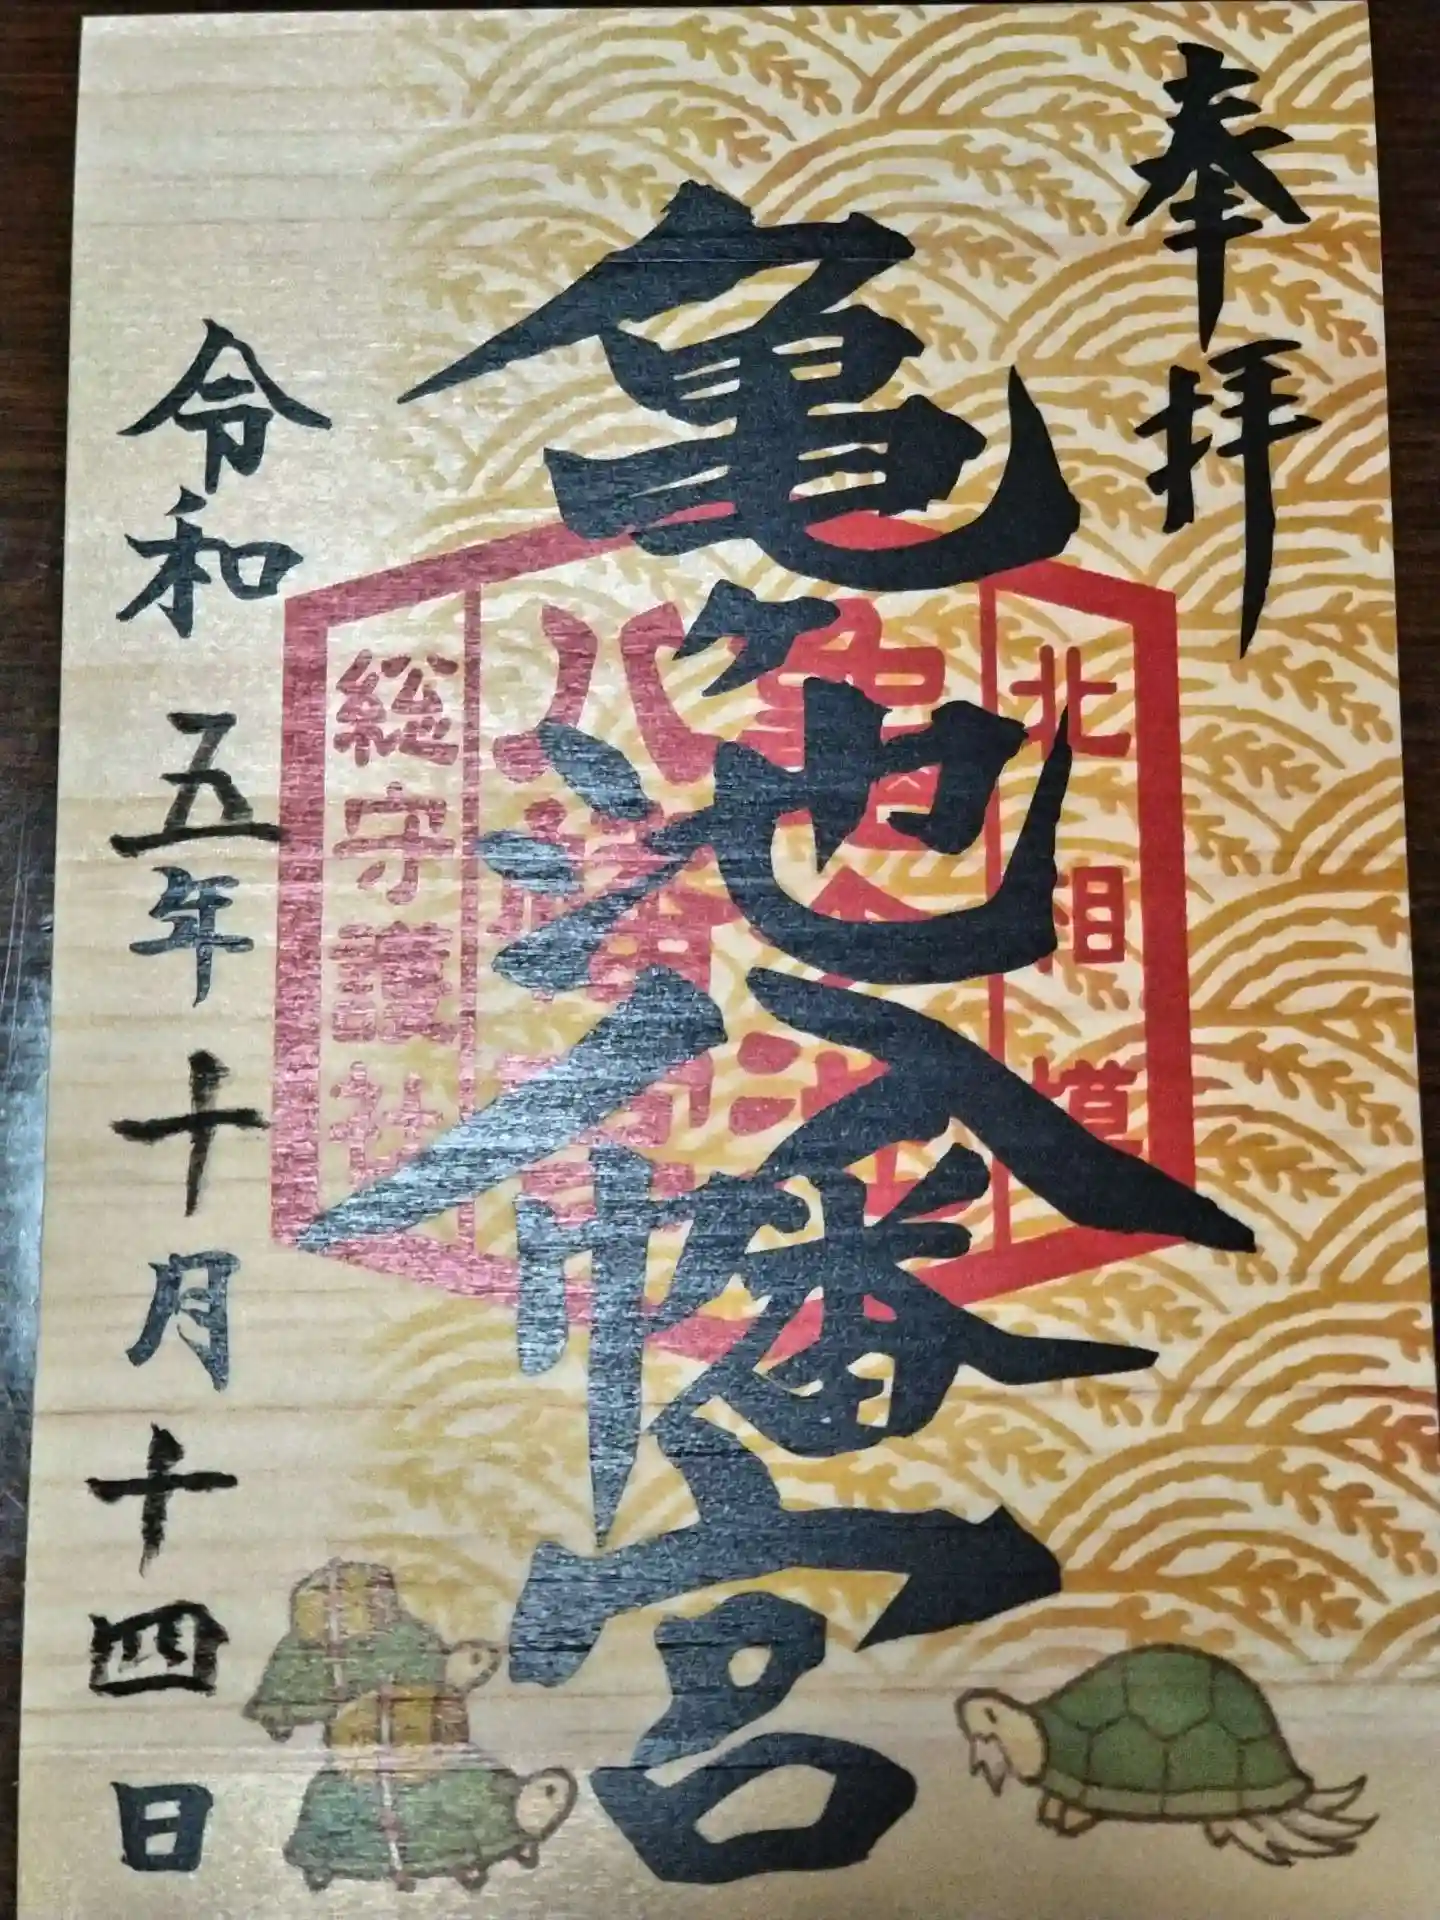 奉拝
北相模
亀ヶ池八幡宮
総守護社
令和五年十月十四日